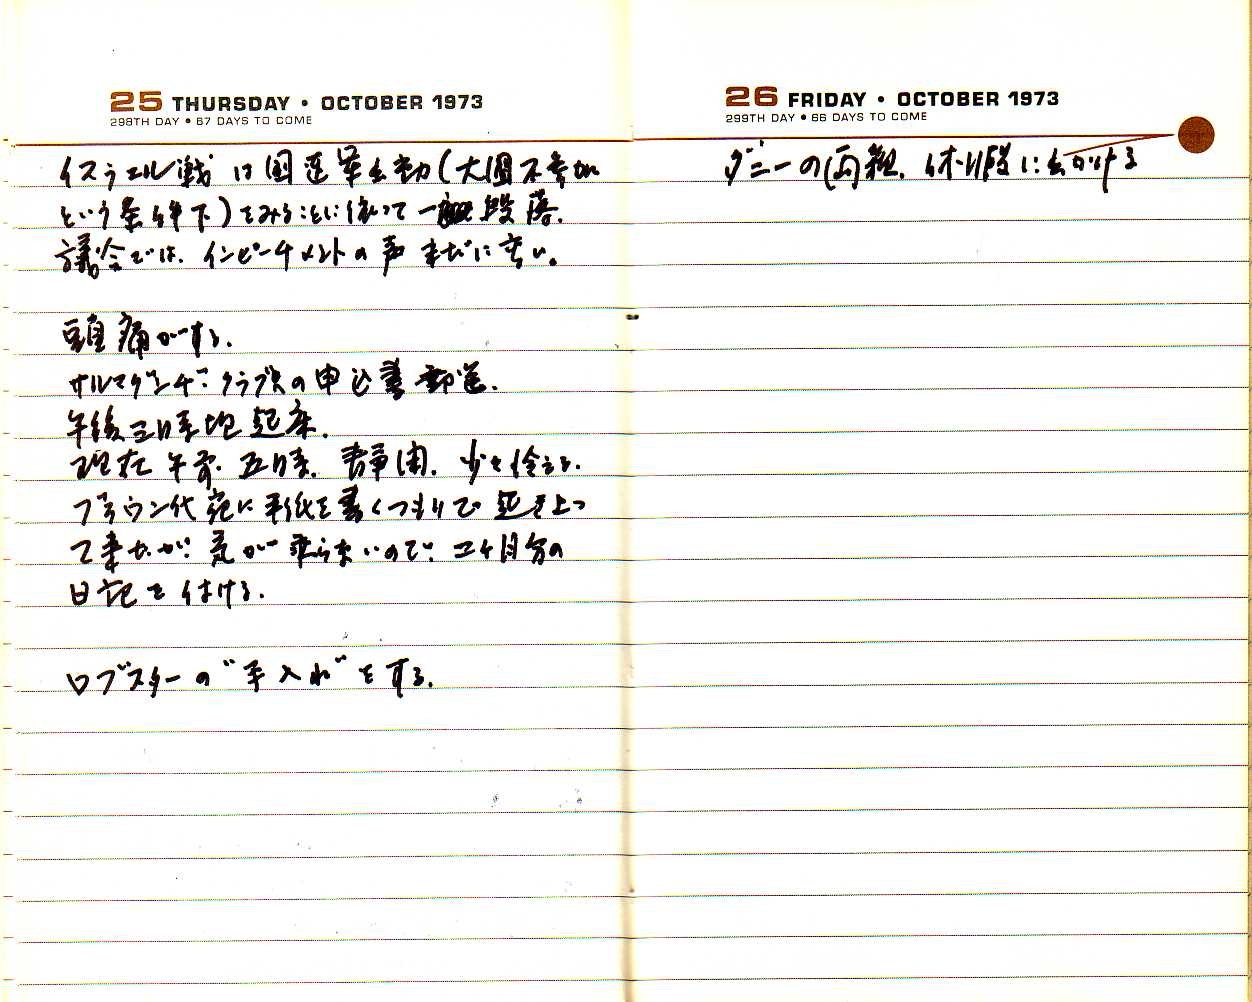 25 THURSDAY • OCTOBER 1973
298TH DAY • 67 DAYS TO COME
イスラエル戦は国連軍出動(大国不参加
という条件下)をみることに依って一段落.
議会では、インピーチメントの声まだに高い。
頭痛がする.
サルマグンヂ・クラブへの申込書郵送.
午後三時頃起床.
現在午前五時. 静閑. 少々冷える.
ブラウン代宛に手紙を書くつもりで起き上っ
て来たが、気が乗らないので、二ヶ月分の
日記を付ける.
ロブスターの"手入れ"をする.
26 FRIDAY • OCTOBER 1973
299TH DAY • 66 DAYS TO COME
ダニーの両親、休暇に出かける